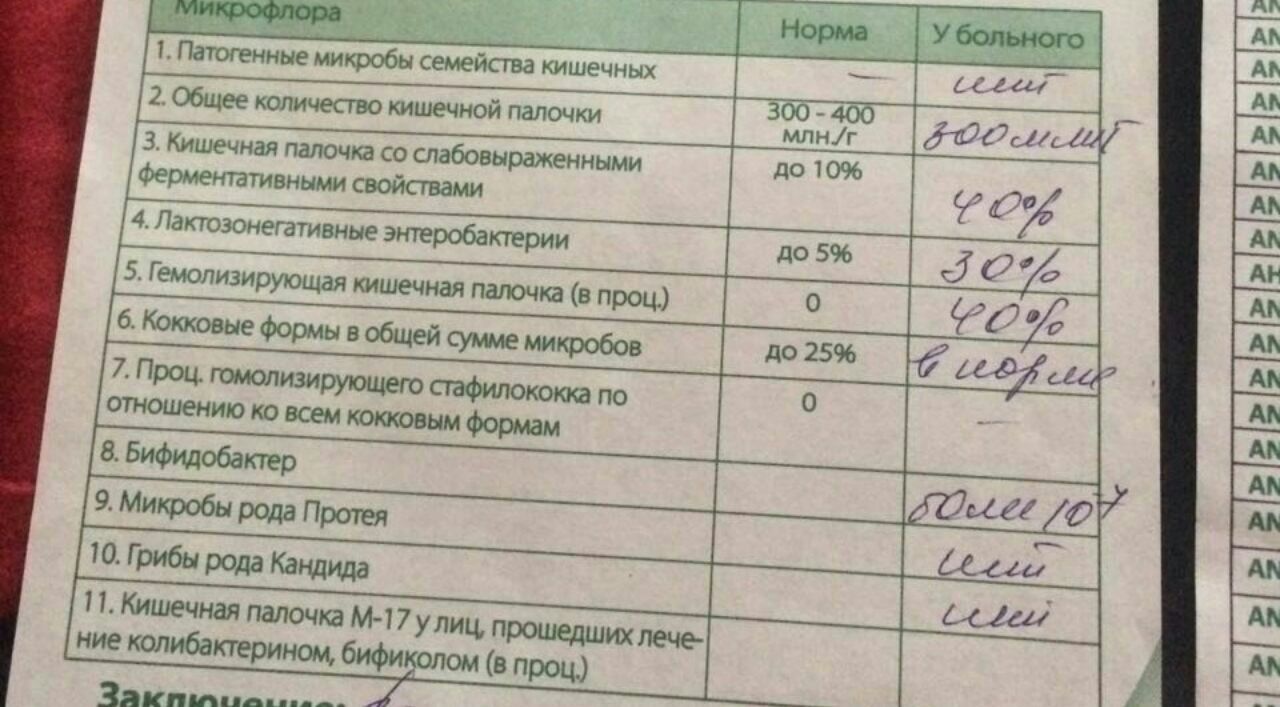 Микрофлора Норма У больного
1. Патогенные микробы семейства кишечных — нит
2. Общее количество кишечной палочки 300 - 400 млн./г 300 млн/г
3. Кишечная палочка со слабовыраженными
ферментативными свойствами до 10% 40%
4. Лактозонегативные энтеробактерии до 5% 30%
5. Гемолизирующая кишечная палочка (в проц.) 0 40%
6. Кокковые формы в общей сумме микробов до 25% в норме
7. Проц. гомолизирующего стафилококка по
отношению ко всем кокковым формам 0 —
8. Бифидобактер
9. Микробы рода Протея более 10-7
10. Грибы рода Кандида
11. Кишечная палочка М-17 у лиц, прошедших лече-
ние колибактерином, бификолом (в проц.)
Заключение: